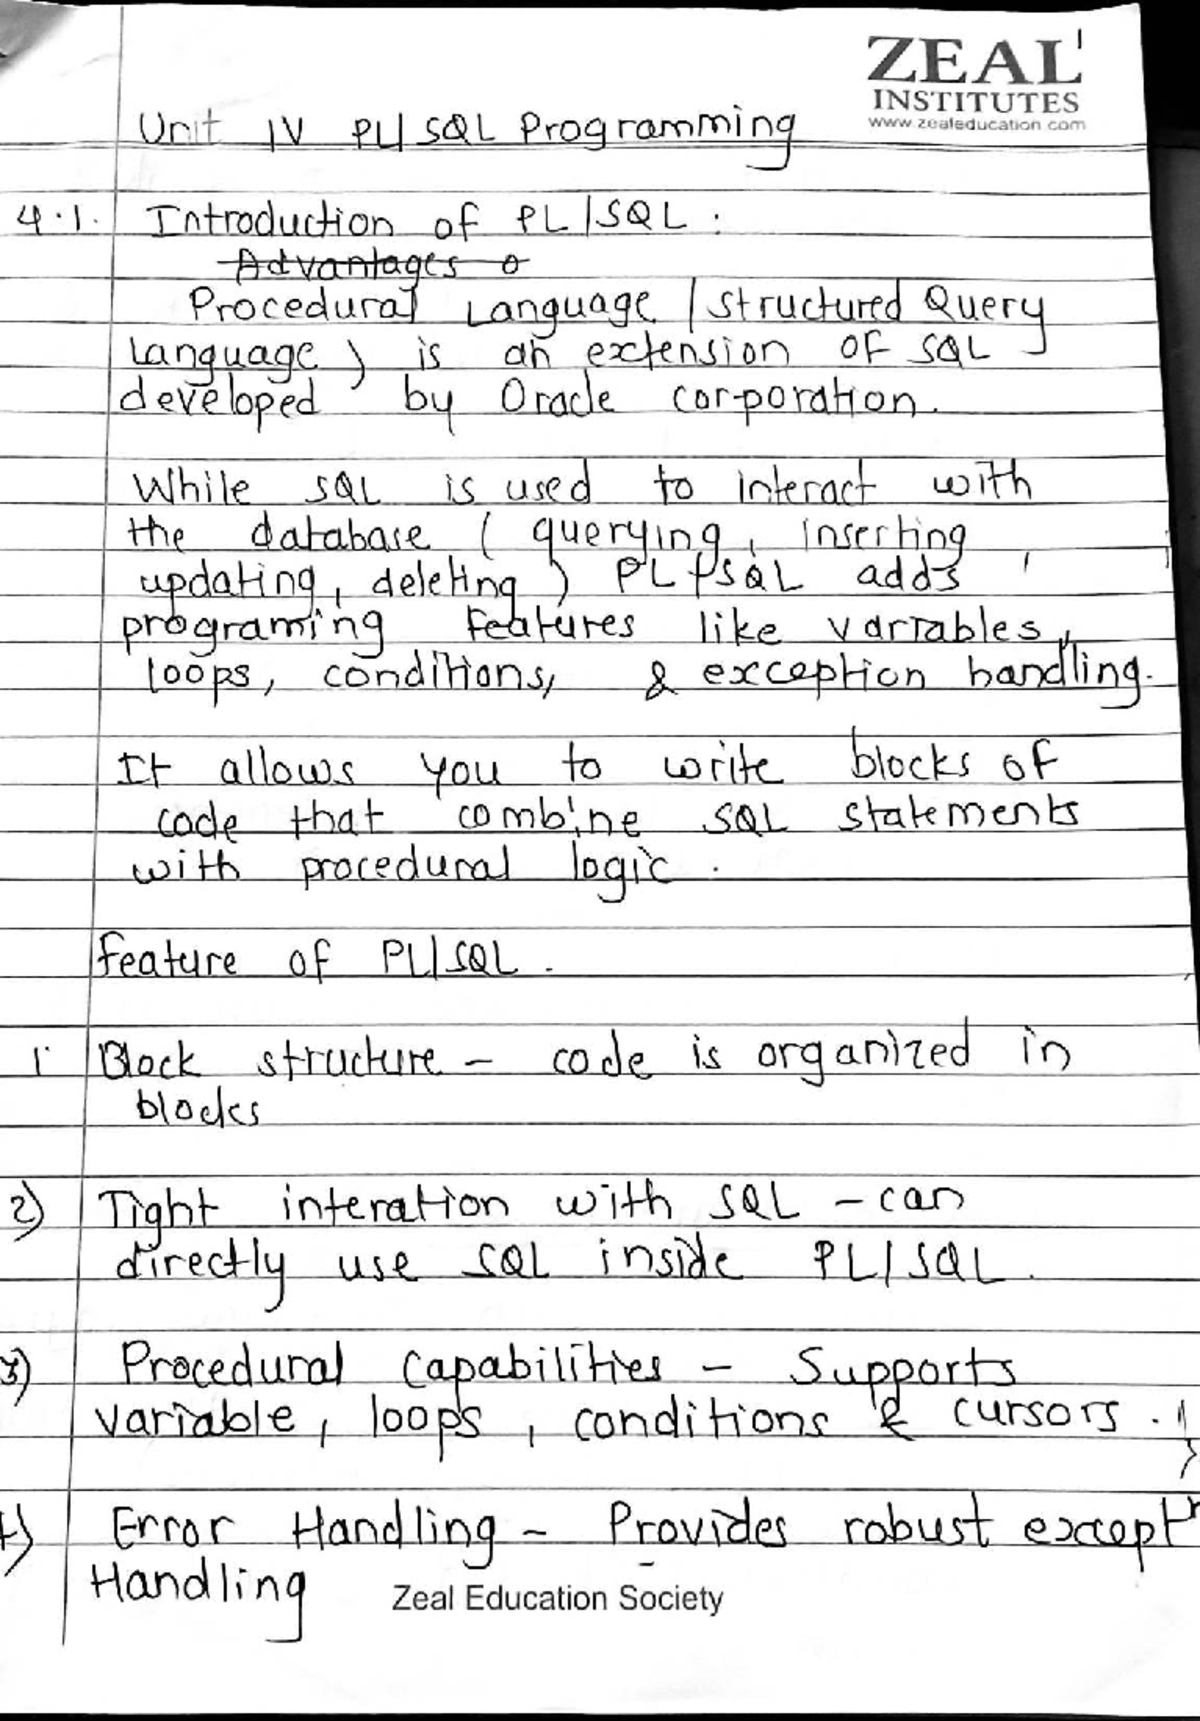 ZEAL 1
INSTITUTES
www.zealeducation.com
Unit IV PL/SQL Programming
4.1. Introduction of PL/SQL :
Advantages o
Procedural Language / Structured Query
Language ) is an extension of SQL
developed by Oracle corporation.
While SQL is used to interact with
the database ( querying, inserting,
updating, deleting ) PL/SQL adds
programing features like variables,
loops, conditions, & exception handling.
It allows you to write blocks of
code that combine SQL statements
with procedural logic.
Feature of PL/SQL.
1. Block structure - code is organized in
blocks
2) Tight interation with SQL - can
directly use SQL inside PL/SQL.
3) Procedural capabilities - Supports
variable, loops, conditions & cursors.
4) Error Handling - Provides robust exceptn
Handling
Zeal Education Society